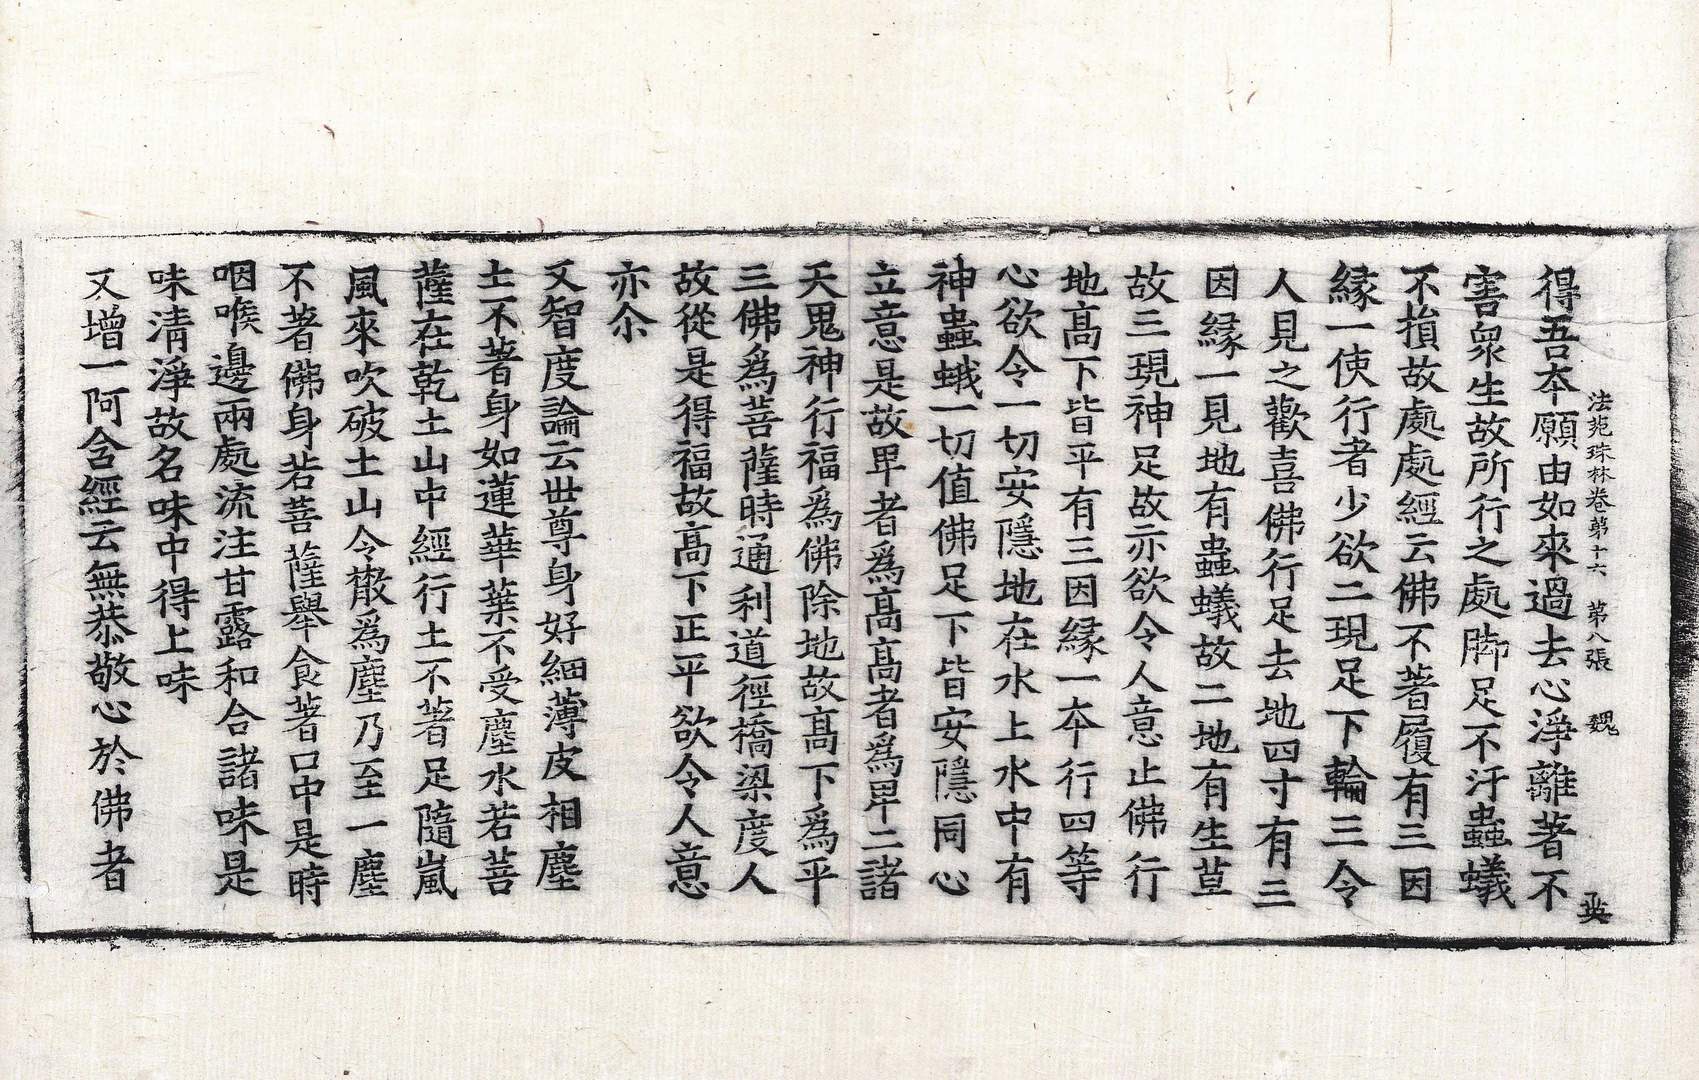 法苑珠林卷第十六　第八張　魏英
得吾夲願由如來過去心淨離著不
害衆生故所行之處脚足不汙蟲蟻
不損故處處經云佛不著履有三因
緣一使行者少欲二現足下輪三令
人見之歡喜佛行足去地四寸有三
因緣一見地有蟲蟻故二地有生草
故三現神足故亦欲令人意止佛行
地高下皆平有三因緣一夲行四等
心欲令一切安隱地在水上水中有
神蟲蛾一切值佛足下皆安隱同心
立意是故卑者爲高高者爲卑二諸
天鬼神行福爲佛除地故高下爲平
三佛爲菩薩時通利道徑橋梁度人
故從是得福故高下正平欲令人意
亦尒
又智度論云世尊身好細薄皮相塵
土不著身如蓮華葉不受塵水若菩
薩在乾土山中經行土不著足隨嵐
風來吹破土山令散爲塵乃至一塵
不著佛身若菩薩舉食著口中是時
咽喉邊兩處流注甘露和合諸味是
味清淨故名味中得上味
又增一阿含經云無恭敬心於佛者